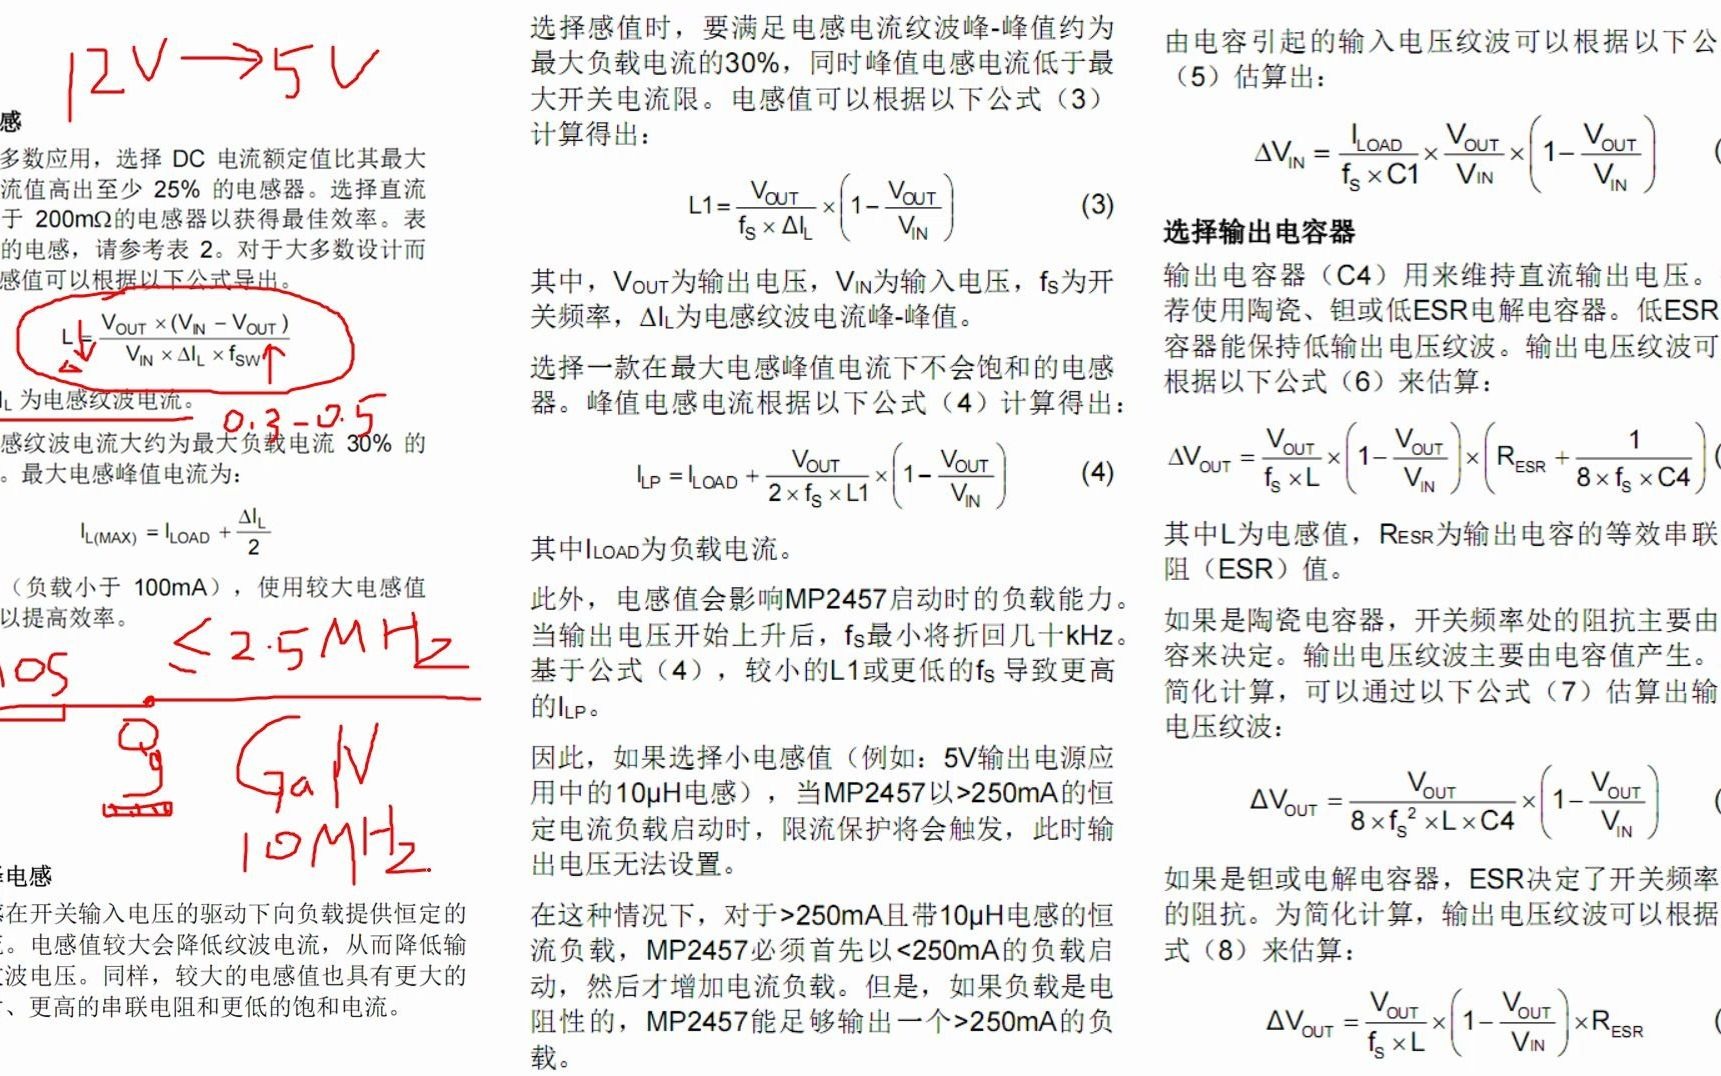 12V→5V
感
多数应用，选择 DC 电流额定值比其最大
流值高出至少 25% 的电感器。选择直流
于 200mΩ的电感器以获得最佳效率。表
的电感，请参考表 2。对于大多数设计而
感值可以根据以下公式导出。
L = V_OUT × (V_IN − V_OUT) / (V_IN × ΔI_L × f_SW)
I_L 为电感纹波电流。
0.3-0.5
感纹波电流大约为最大负载电流 30% 的
。最大电感峰值电流为：
I_L(MAX) = I_LOAD + ΔI_L / 2
（负载小于 100mA），使用较大电感值
以提高效率。
≤2.5MHz
OS
Qg
GaN
10MHz
电感
在开关输入电压的驱动下向负载提供恒定的
。电感值较大会降低纹波电流，从而降低输
波电压。同样，较大的电感值也具有更大的
、更高的串联电阻和更低的饱和电流。
选择感值时，要满足电感电流纹波峰-峰值约为
最大负载电流的30%，同时峰值电感电流低于最
大开关电流限。电感值可以根据以下公式（3）
计算得出：
L1 = V_OUT / (f_S × ΔI_L) × (1 − V_OUT / V_IN) (3)
其中，VOUT为输出电压，VIN为输入电压，fS为开
关频率，ΔIL为电感纹波电流峰-峰值。
选择一款在最大电感峰值电流下不会饱和的电感
器。峰值电感电流根据以下公式（4）计算得出：
I_LP = I_LOAD + V_OUT / (2 × f_S × L1) × (1 − V_OUT / V_IN) (4)
其中ILOAD为负载电流。
此外，电感值会影响MP2457启动时的负载能力。
当输出电压开始上升后，fS最小将折回几十kHz。
基于公式（4），较小的L1或更低的fS 导致更高
的ILP。
因此，如果选择小电感值（例如：5V输出电源应
用中的10μH电感），当MP2457以>250mA的恒
定电流负载启动时，限流保护将会触发，此时输
出电压无法设置。
在这种情况下，对于>250mA且带10μH电感的恒
流负载，MP2457必须首先以<250mA的负载启
动，然后才增加电流负载。但是，如果负载是电
阻性的，MP2457能足够输出一个>250mA的负
载。
由电容引起的输入电压纹波可以根据以下公
（5）估算出：
ΔV_IN = I_LOAD / (f_S × C1) × V_OUT / V_IN × (1 − V_OUT / V_IN)
选择输出电容器
输出电容器（C4）用来维持直流输出电压。
荐使用陶瓷、钽或低ESR电解电容器。低ESR
容器能保持低输出电压纹波。输出电压纹波可
根据以下公式（6）来估算：
ΔV_OUT = V_OUT / (f_S × L) × (1 − V_OUT / V_IN) × (R_ESR + 1 / (8 × f_S × C4))
其中L为电感值，RESR为输出电容的等效串联
阻（ESR）值。
如果是陶瓷电容器，开关频率处的阻抗主要由
容来决定。输出电压纹波主要由电容值产生。
简化计算，可以通过以下公式（7）估算出输
电压纹波：
ΔV_OUT = V_OUT / (8 × f_S² × L × C4) × (1 − V_OUT / V_IN)
如果是钽或电解电容器，ESR决定了开关频率
的阻抗。为简化计算，输出电压纹波可以根据
式（8）来估算：
ΔV_OUT = V_OUT / (f_S × L) × (1 − V_OUT / V_IN) × R_ESR